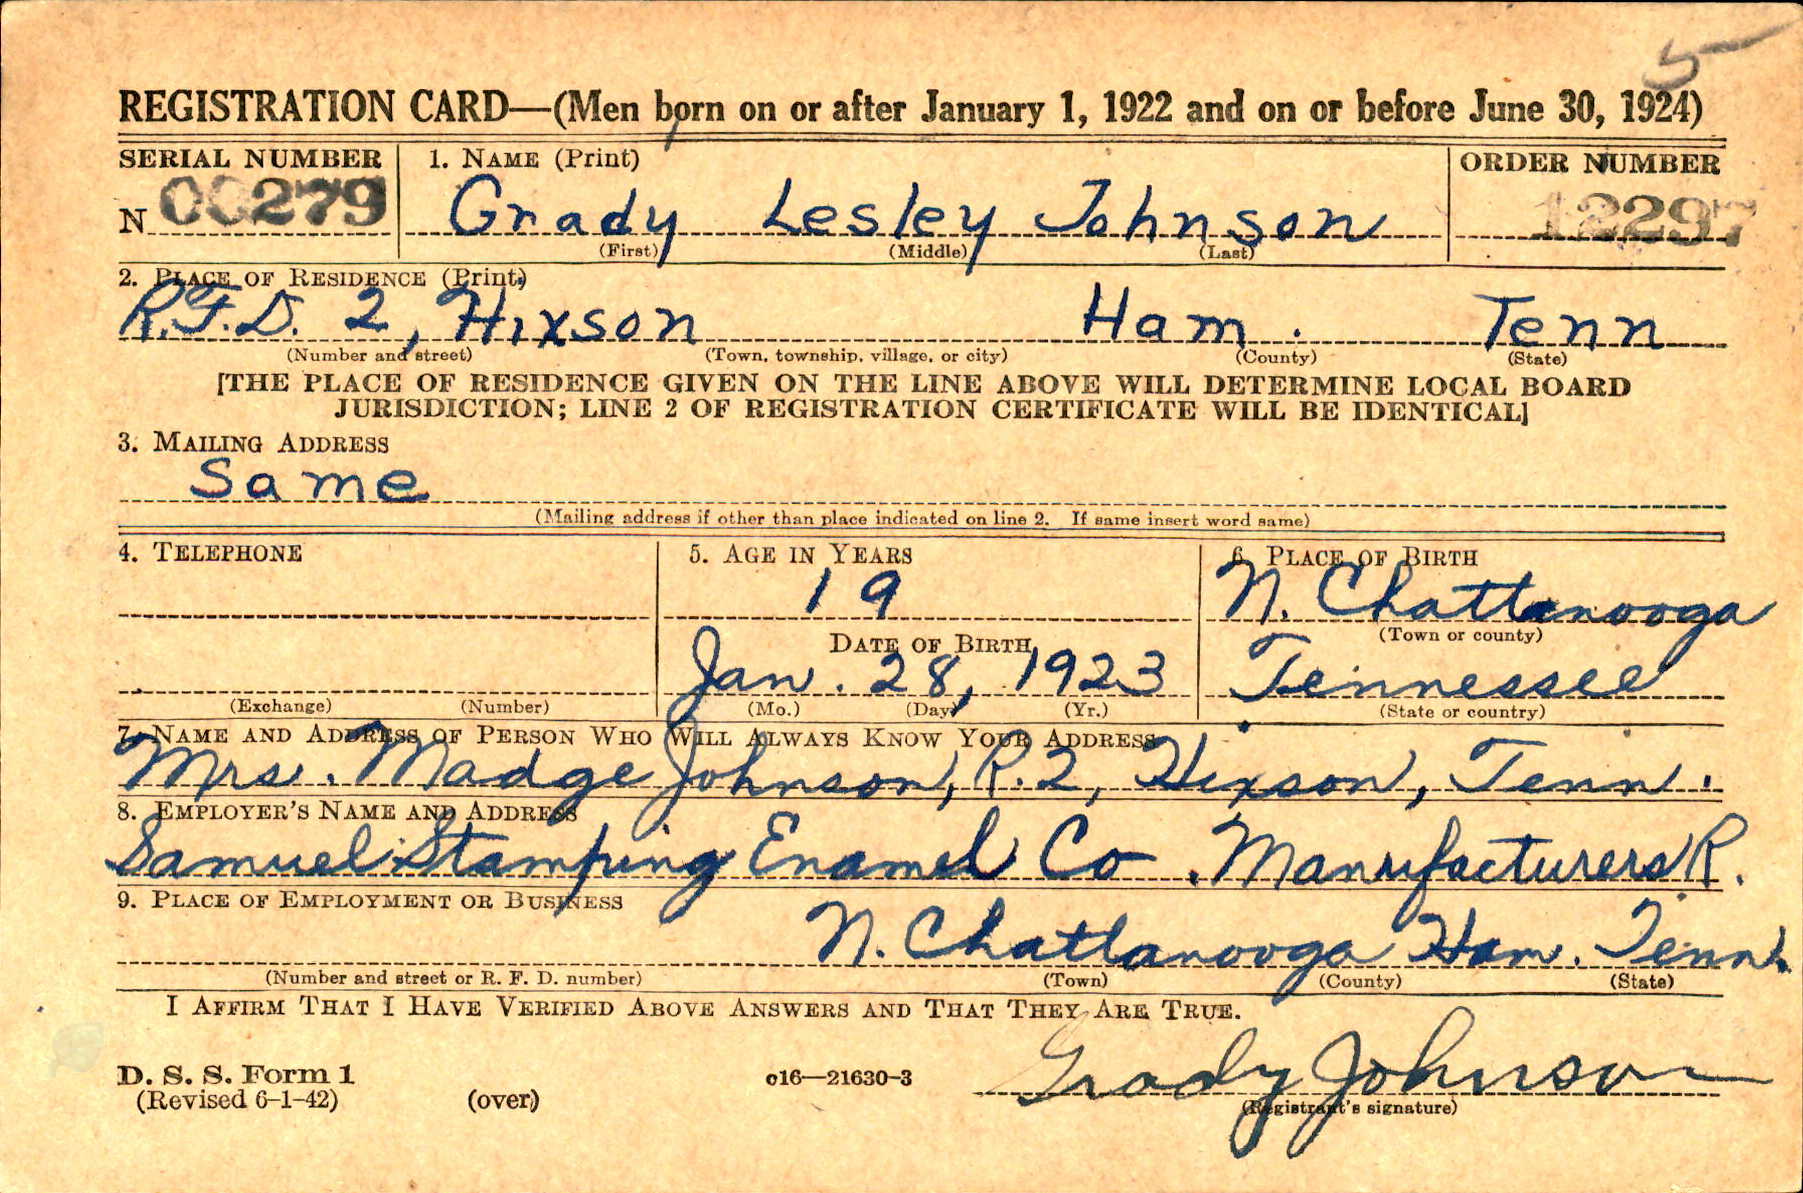 5
REGISTRATION CARD—(Men born on or after January 1, 1922 and on or before June 30, 1924)
SERIAL NUMBER 1. NAME (Print) ORDER NUMBER
N 00279 Grady Lesley Johnson 12297
(First) (Middle) (Last)
2. PLACE OF RESIDENCE (Print)
R.F.D. 2, Hixson Ham. Tenn
(Number and street) (Town, township, village, or city) (County) (State)
[THE PLACE OF RESIDENCE GIVEN ON THE LINE ABOVE WILL DETERMINE LOCAL BOARD
JURISDICTION; LINE 2 OF REGISTRATION CERTIFICATE WILL BE IDENTICAL]
3. MAILING ADDRESS
Same
(Mailing address if other than place indicated on line 2. If same insert word same)
4. TELEPHONE 5. AGE IN YEARS 6. PLACE OF BIRTH
19 N. Chattanooga
DATE OF BIRTH (Town or county)
Jan. 28, 1923 Tennessee
(Exchange) (Number) (Mo.) (Day) (Yr.) (State or country)
7. NAME AND ADDRESS OF PERSON WHO WILL ALWAYS KNOW YOUR ADDRESS
Mrs. Madge Johnson, R.2, Hixson, Tenn.
8. EMPLOYER'S NAME AND ADDRESS
Samuel Stamping Enamel Co. Manufacturers R.
9. PLACE OF EMPLOYMENT OR BUSINESS
N. Chattanooga Ham. Tenn.
(Number and street or R. F. D. number) (Town) (County) (State)
I AFFIRM THAT I HAVE VERIFIED ABOVE ANSWERS AND THAT THEY ARE TRUE.
D. S. S. Form 1
(Revised 6-1-42) (over) c16—21630-3 Grady Johnson
(Registrant's signature)